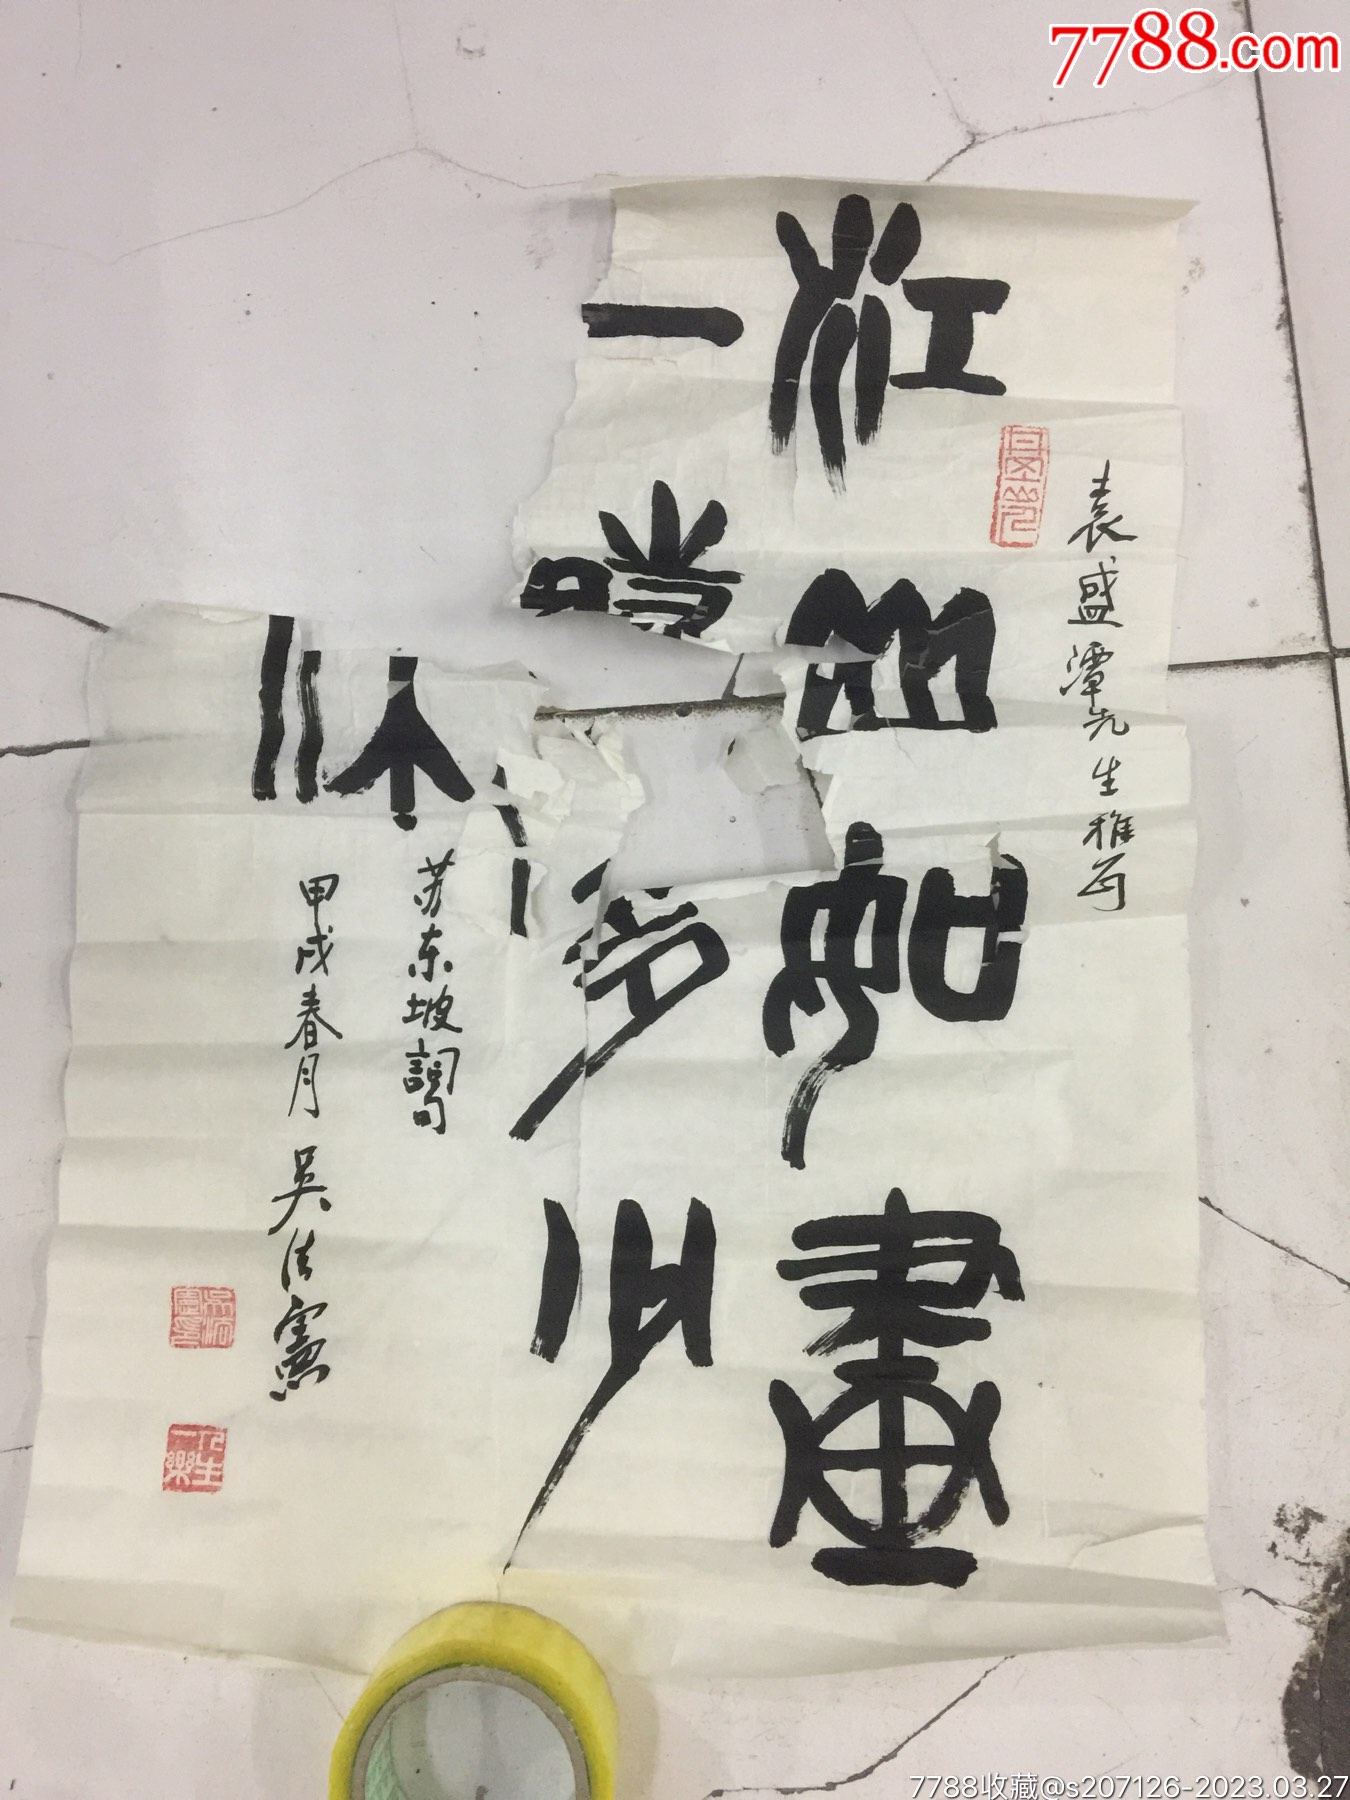 7788.com
袁盛潭先生雅正
江山如畫
一時多少
苏东坡詞句
甲戌春月吴法憲
人生一樂
7788收藏@s207126-2023.03.27